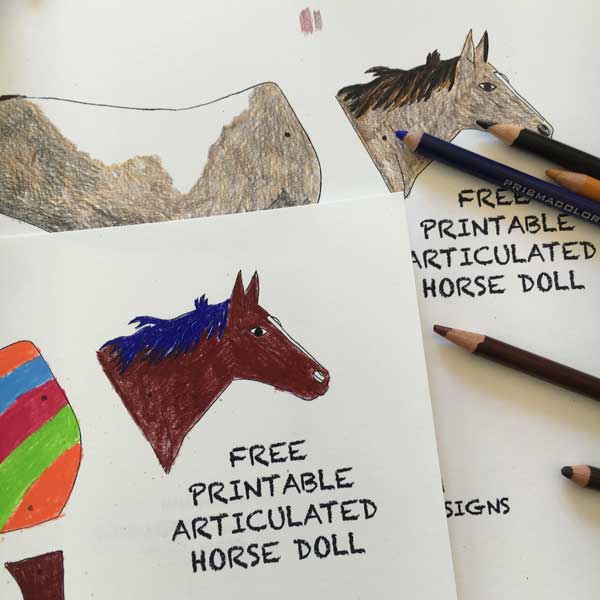 PRISMACOLOR
FREE
PRINTABLE
ARTICULATED
HORSE DOLL
SIGNS
FREE
PRINTABLE
ARTICULATED
HORSE DOLL